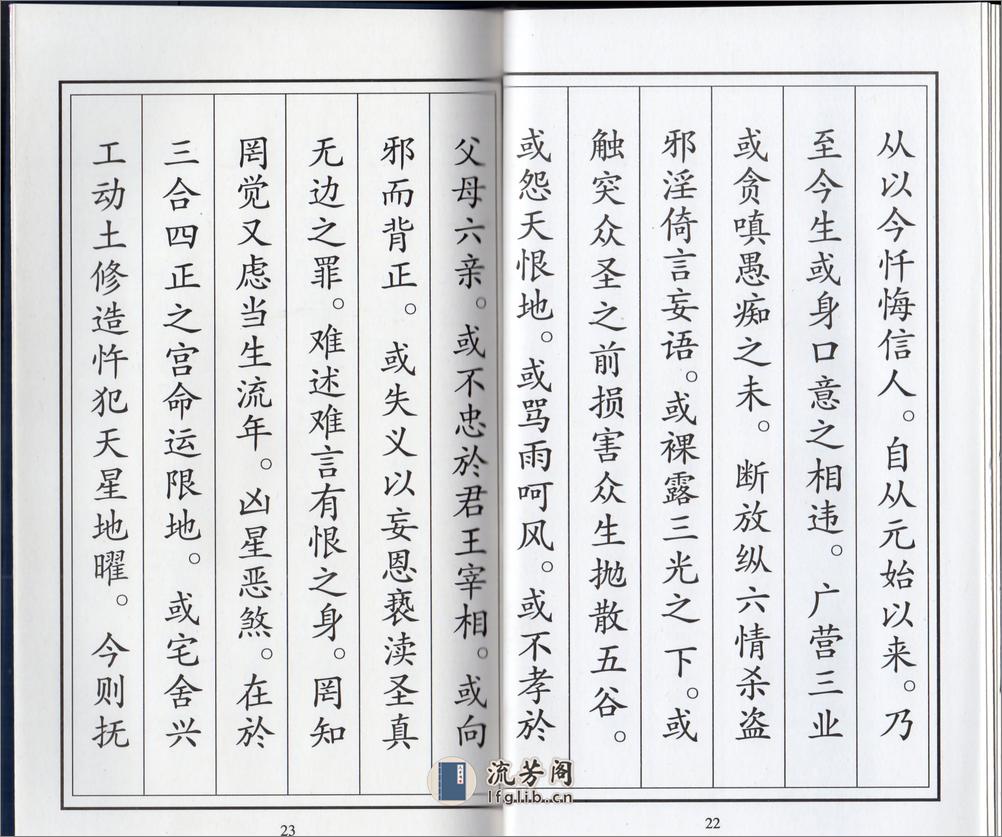 从以今忏悔信人。自从元始以来。乃
至今生或身口意之相违。广营三业
或贪嗔愚痴之未。断放纵六情杀盗
邪淫倚言妄语。或裸露三光之下。或
触突众圣之前损害众生抛散五谷。
或怨天恨地。或骂雨呵风。或不孝於
22
父母六亲。或不忠於君王宰相。或向
邪而背正。或失义以妄恩亵渎圣真
无边之罪。难述难言有恨之身。罔知
罔觉又虑当生流年。凶星恶煞。在於
三合四正之宫命运限地。或宅舍兴
工动土修造忤犯天星地曜。今则抚
23
流芳阁
lfglib.cn